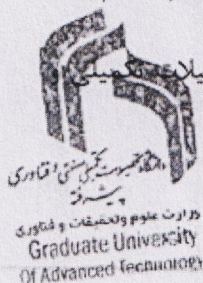 دانشگاه تحصیلات تکمیلی صنعتی و فناوری
پیشرفته
وزارت علوم وتحقیقات و فناوری
Graduate University
Of Advanced Technology